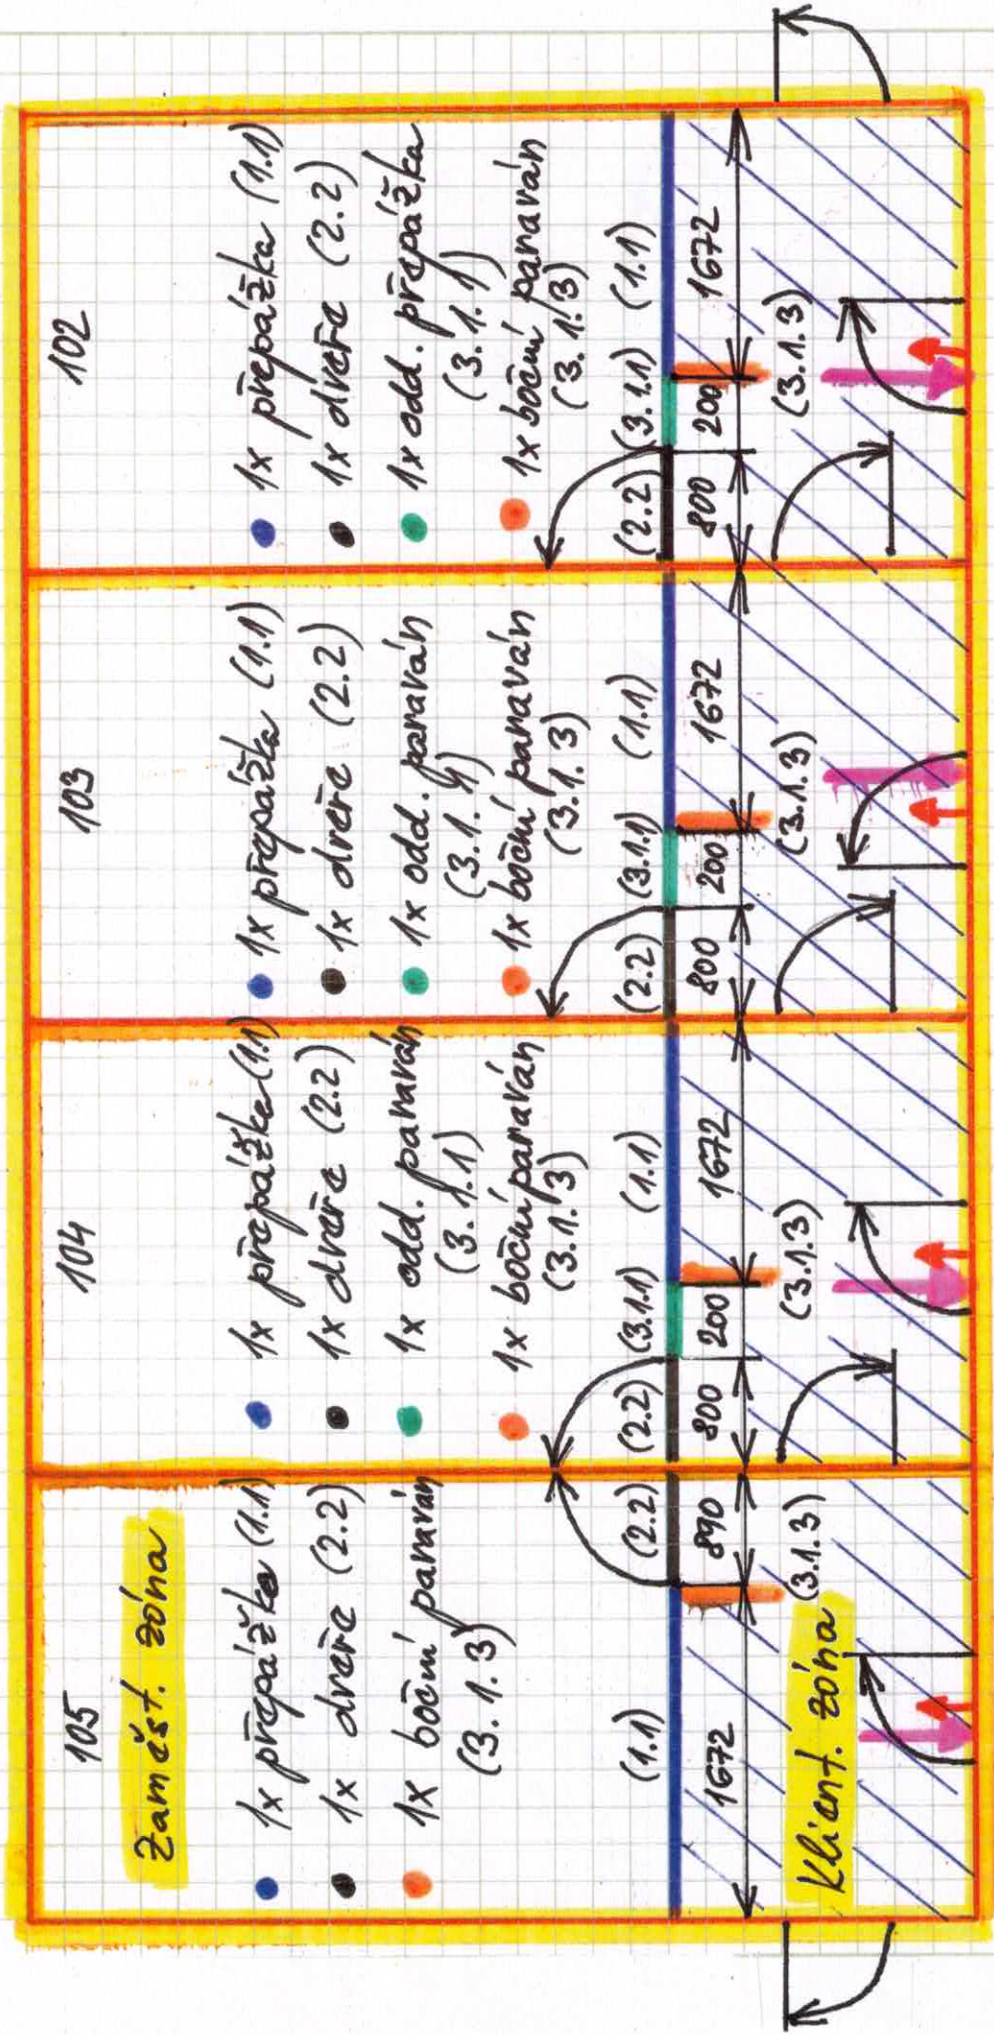 105
Zaměst. zóna
1x přepážka (1.1)
1x dveře (2.2)
1x boční paraván
(3.1.3)
(1.1)
(2.2)
1672
890
(3.1.3)
Klient. zóna
104
1x přepážka (1.1)
1x dveře (2.2)
1x odd. paraván
(3.1.1)
1x boční paraván
(3.1.3)
(2.2)
(3.1.1)
(1.1)
800
200
1672
(3.1.3)
103
1x přepážka (1.1)
1x dveře (2.2)
1x odd. paraván
(3.1.1)
1x boční paraván
(3.1.3)
(2.2)
(3.1.1)
(1.1)
800
200
1672
(3.1.3)
102
1x přepážka (1.1)
1x dveře (2.2)
1x odd. přepážka
(3.1.1)
1x boční paraván
(3.1.3)
(2.2)
(3.1.1)
(1.1)
800
200
1672
(3.1.3)